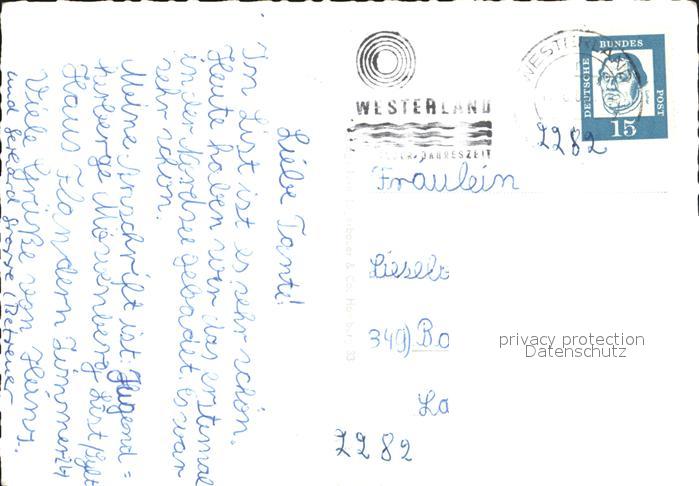 Liebe Tante!
In List ist es sehr schön.
Heute haben wir das erstemal
in der Nordsee gebadet. Es war
sehr schön.
Meine Anschrift ist: Jugend=
herberge Möwenberg List/Sylt
Haus Flandern Zimmer 24
Viele Grüße von Heinz.
und (Betreuer
WESTERLAND
WESTERLAND
JAHRESZEIT
DEUTSCHE
BUNDES
POST
15
2282
Fräulein
Lieselo
349) Bo
La
2282
privacy protection
Datenschutz